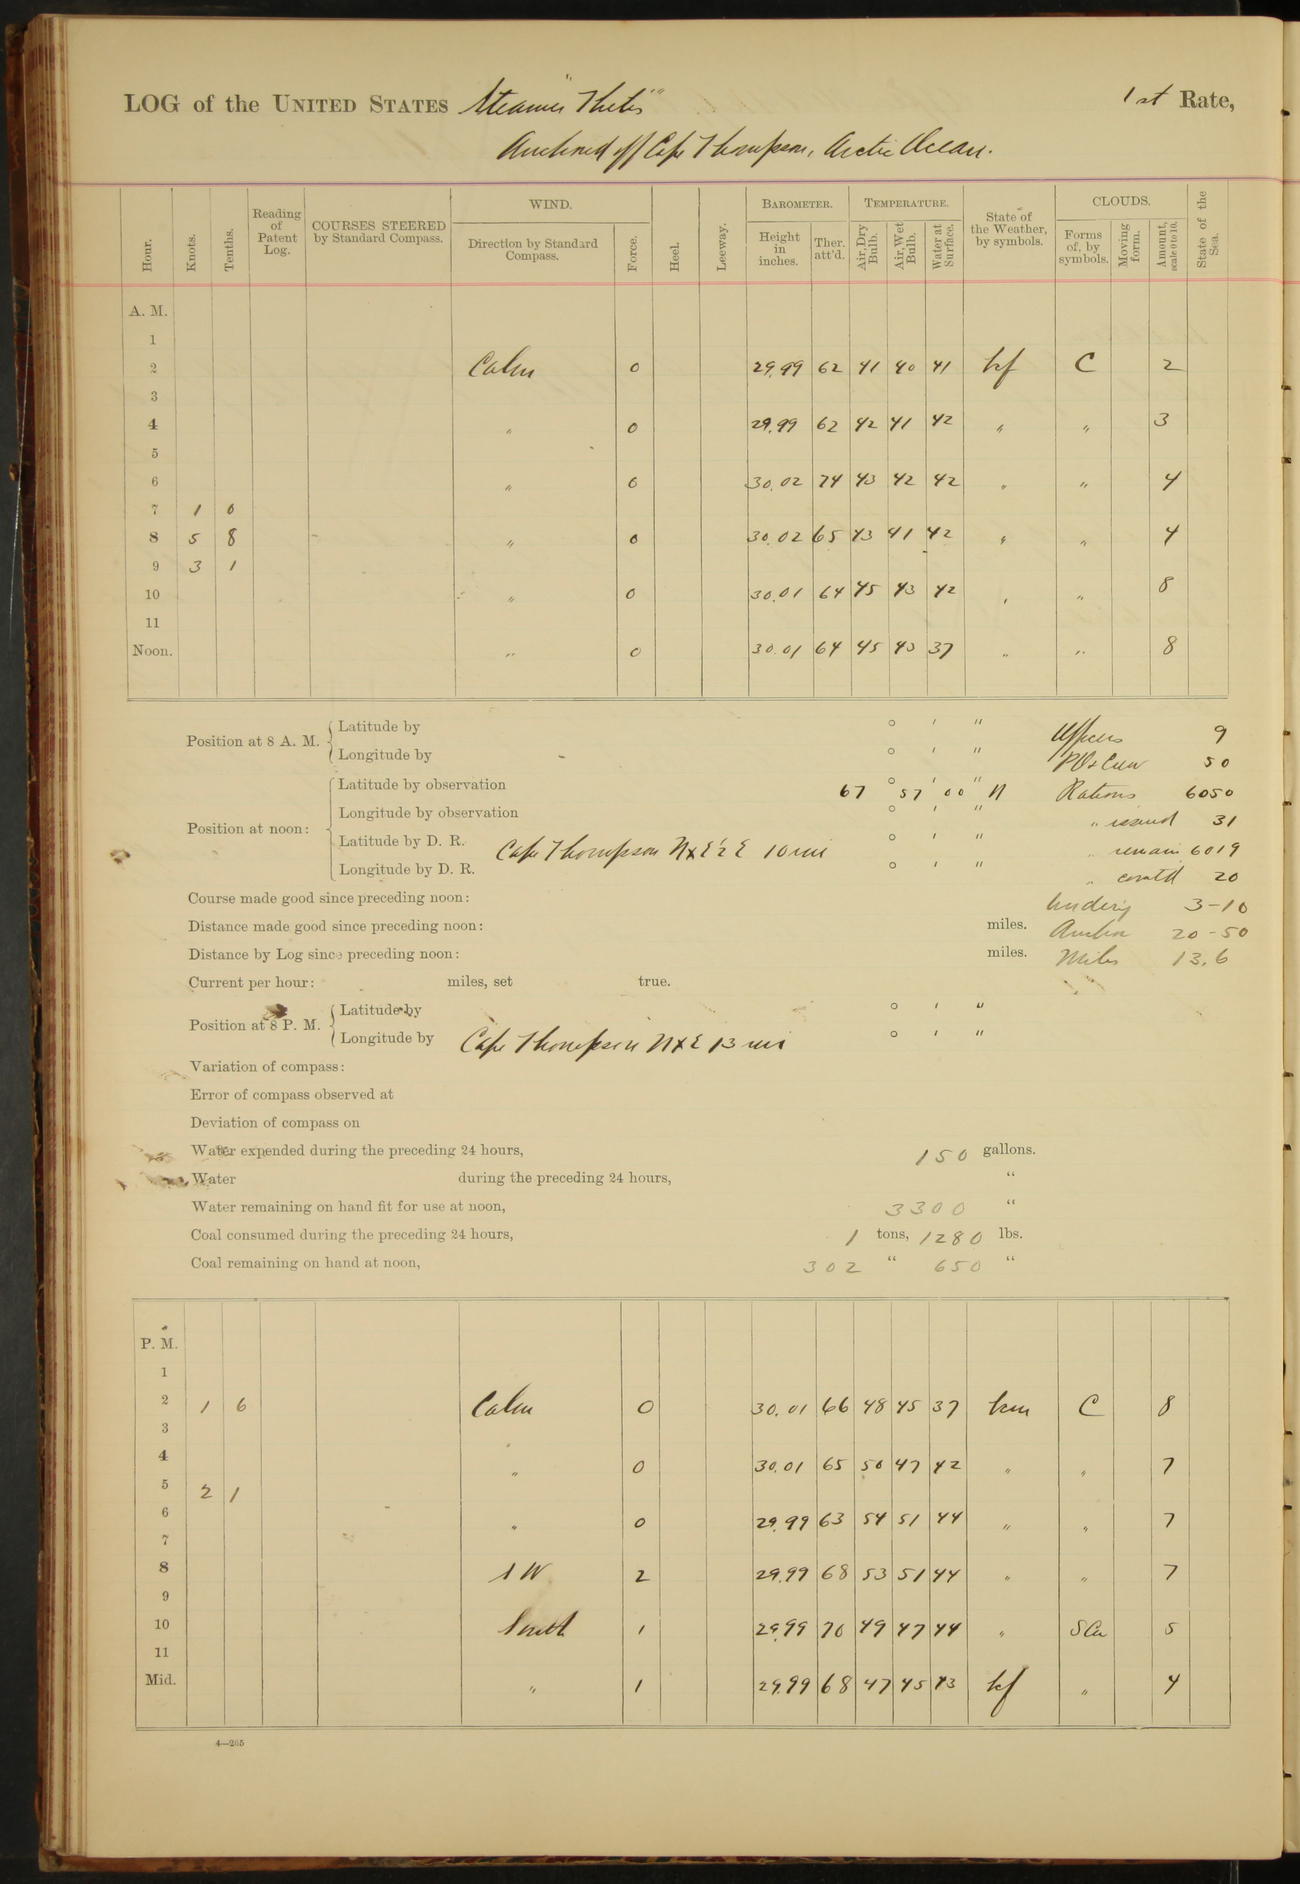 LOG of the UNITED STATES Steamer "Thetis" 1st Rate,
Anchored off Cape Thompson, Arctic Ocean.
Hour. Knots. Tenths. Reading of Patent Log. COURSES STEERED by Standard Compass. WIND. Direction by Standard Compass. Force. Heel. Leeway. BAROMETER. Height in inches. Ther. att'd. TEMPERATURE. Air, Dry Bulb. Air, Wet Bulb. Water at Surface. State of the Weather, by symbols. CLOUDS. Forms of, by symbols. Moving form. Amount, scale 0 to 10. State of the Sea.
A. M.
1
2 Calm 0 29.99 62 41 40 41 bf C 2
3
4 " 0 29.99 62 42 41 42 " " 3
5
6 " 0 30.02 74 43 42 42 " " 4
7 1 0
8 5 8 " 0 30.02 65 43 41 42 " " 4
9 3 1
10 " 0 30.01 64 45 43 42 " " 8
11
Noon. " 0 30.01 64 45 43 37 " " 8
Position at 8 A. M. { Latitude by ° ' " Officers 9
Longitude by ° ' " P.O. & Crew 50
Position at noon: { Latitude by observation 67 ° 57 ' 00 " N Rations 6050
Longitude by observation ° ' " " issued 31
Latitude by D. R. Cape Thompson NxE½E 10 mi ° ' " " remain 6019
Longitude by D. R. ° ' " " com'td 20
Course made good since preceding noon: Underway 3-10
Distance made good since preceding noon: miles. Anchor 20-50
Distance by Log since preceding noon: miles. Miles 13.6
Current per hour: miles, set true.
Position at 8 P. M. { Latitude by ° ' "
Longitude by Cape Thompson NxE 13 mi ° ' "
Variation of compass:
Error of compass observed at
Deviation of compass on
Water expended during the preceding 24 hours, 150 gallons.
Water during the preceding 24 hours, "
Water remaining on hand fit for use at noon, 3300 "
Coal consumed during the preceding 24 hours, 1 tons, 1280 lbs.
Coal remaining on hand at noon, 302 " 650 "
P. M.
1
2 1 6 Calm 0 30.01 66 48 45 37 bcm C 8
3
4 " 0 30.01 65 50 47 42 " " 7
5 2 1
6 " 0 29.99 63 54 51 44 " " 7
7
8 SW 2 29.99 68 53 51 44 " " 7
9
10 South 1 29.99 70 49 47 44 " SCu 5
11
Mid. " 1 29.99 68 47 45 43 bf " 4
4—265